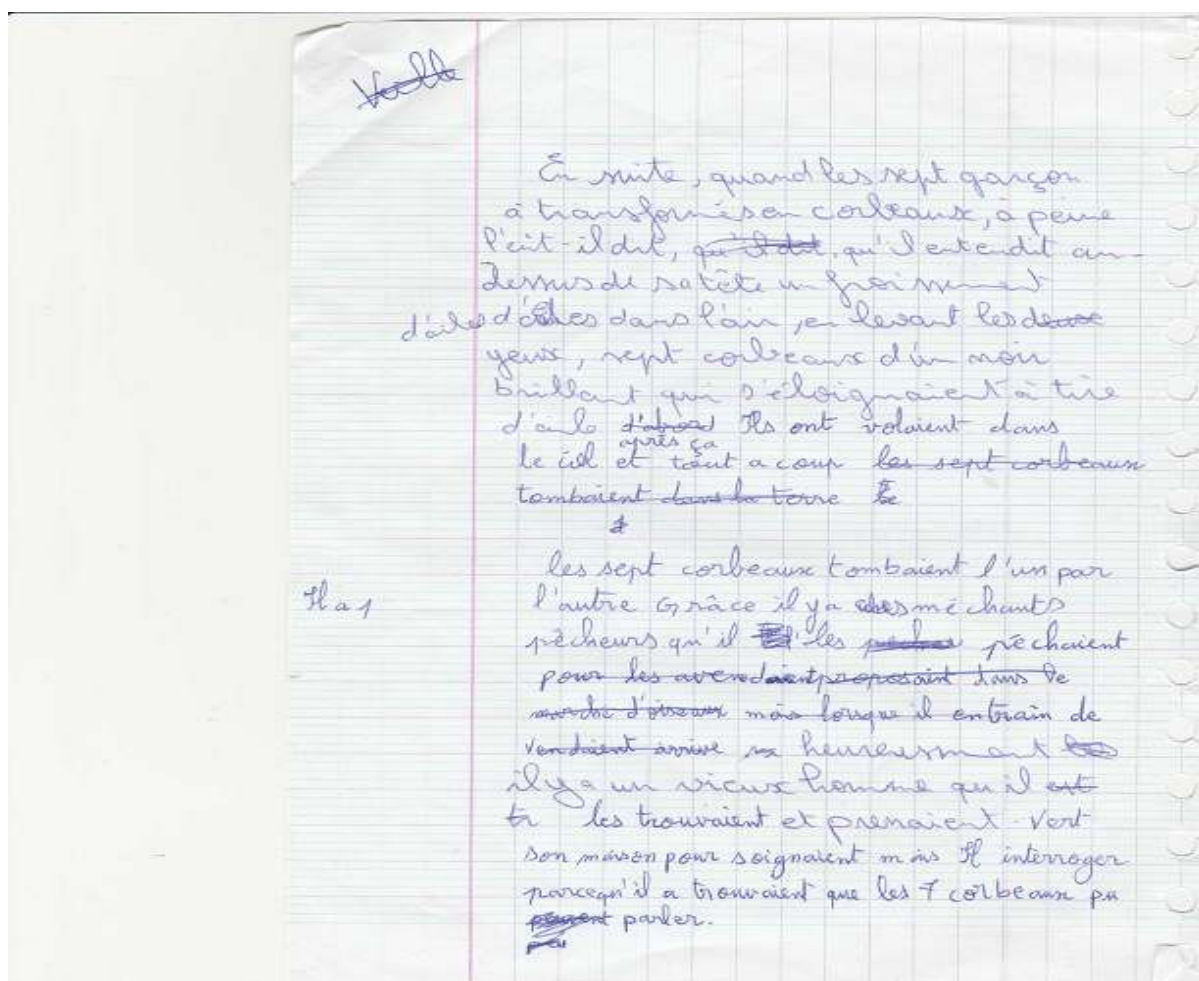 En suite, quand les sept garçon
à transformés en corbeaux, à peine
l'eût-il dit, qu'il dit, qu'il entendit au-
dessus de sa tête un froissement
d'ailes d'ailes dans l'air, en levant les deux
yeux, sept corbeaux d'un noir
brillant qui s'éloignaient à tire
d'aile d'abord Ils ont volaient dans
après ça
le ciel et tout a coup les sept corbeaux
tombaient dans la terre
les sept corbeaux tombaient l'un par
Il a
l'autre Grâce il y a des méchants
pêcheurs qu'il les pêchaient
pour les avendaient proposaint dans le
marche d'oiseaux mais lorsque il entrain de
Vendaient arrive heureusement
il y a un vieux homme qu'il est
tr les trouvaient et prenaient vert
son maison pour soignaient mais Il interroger
parcequ'il a trouvaient que les 7 corbeaux pu
peuvent parler.